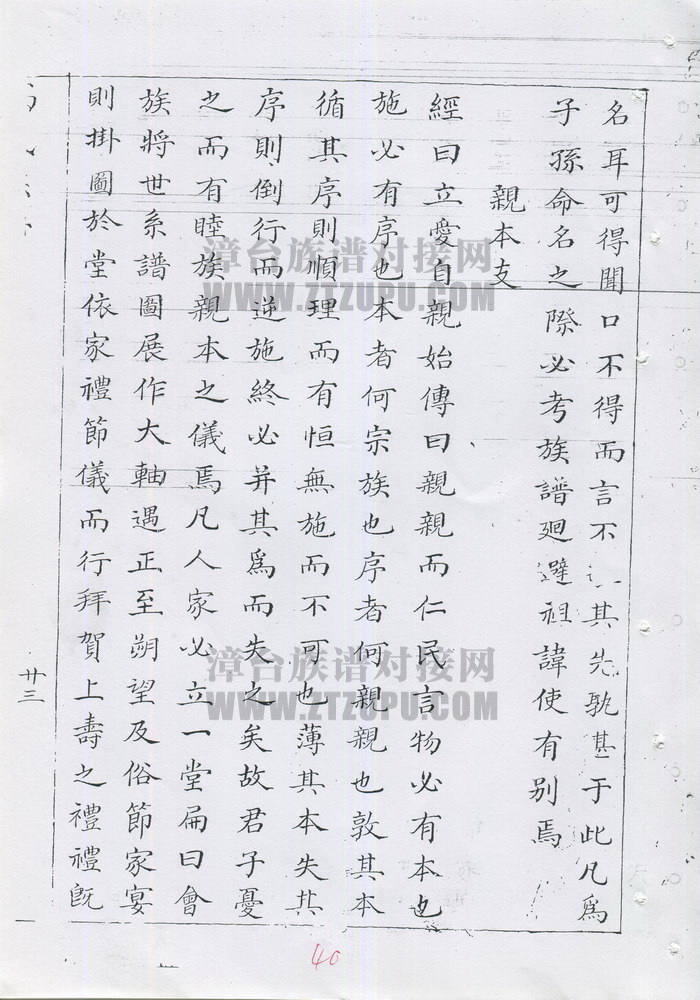 名耳可得聞口不得而言不其先孰甚于此凡爲
子孫命名之際必考族譜廻避祖諱使有别焉
親本支
經曰立愛自親始傳曰親親而仁民言物必有本也
施必有序也本者何宗族也序者何親親也敦其本
循其序則順理而有恒無施而不可也薄其本失其
序則倒行而逆施終必并其爲而失之矣故君子憂
之而有睦族親本之儀焉凡人家必立一堂扁曰會
族將世系譜圖展作大軸遇正至朔望及俗節家宴
則掛圖於堂依家禮節儀而行拜賀上壽之禮禮既
廿三
40
漳台族谱对接网
WWW.ZTZUPU.COM
漳台族谱对接网
WWW.ZTZUPU.COM